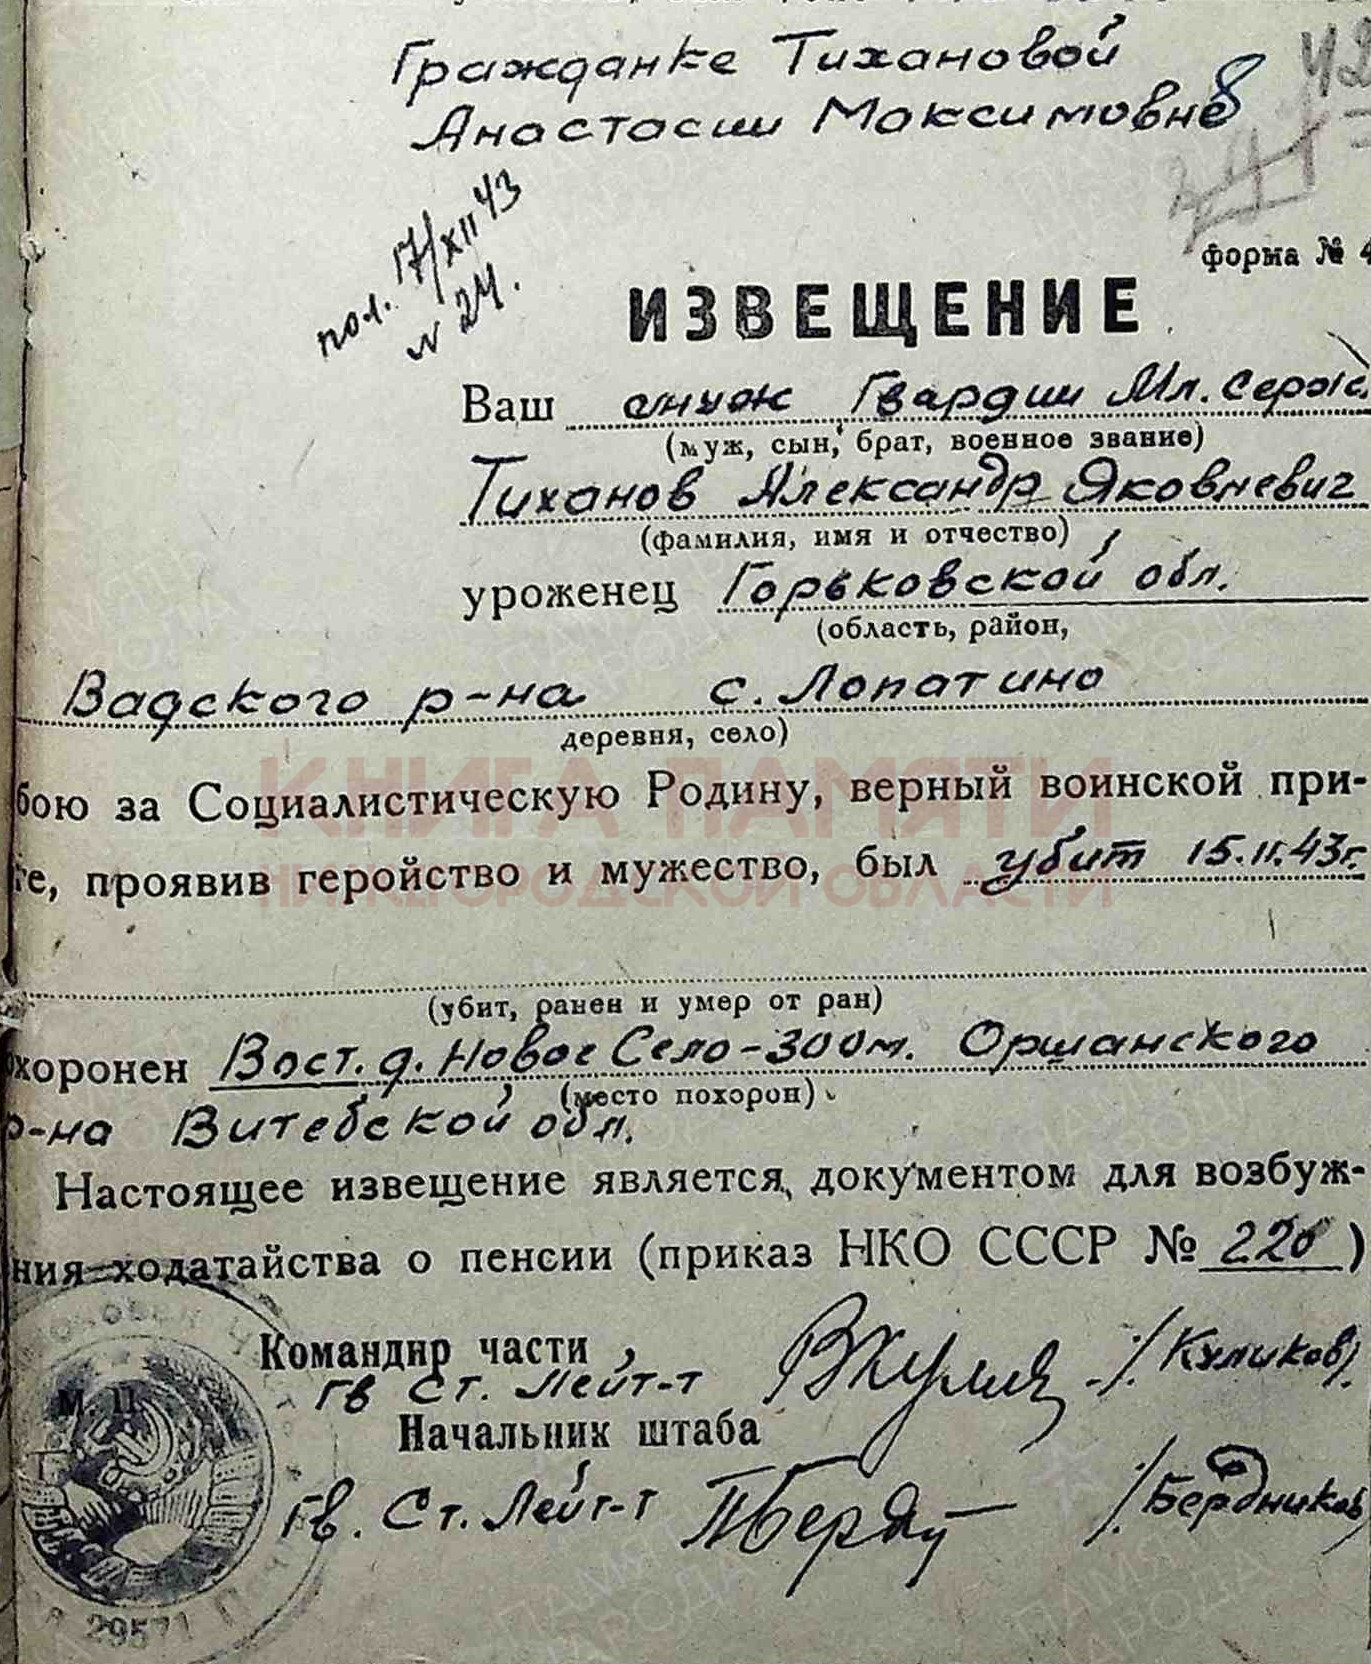 Гражданке Тихановой
Анастасии Максимовне
42
8
пол. 17/XII 43
N 24.
форма № 4
ИЗВЕЩЕНИЕ
Ваш Гвардии Мл. Серж
(муж, сын, брат, военное звание)
Тиханов Александр Яковлевич
(фамилия, имя и отчество)
уроженец Горьковской обл.
(область, район,
Вадского р-на с. Лопатино
деревня, село)
КНИГА ПАМЯТИ
бою за Социалистическую Родину, верный воинской при-
ге, проявив геройство и мужество, был убит 15.11.43г.
НИЖЕГОРОДСКОЙ ОБЛАСТИ
(убит, ранен и умер от ран)
охоронен Вост. д. Новое Село - 300м. Оршанского
(место похорон)
р-на Витебской обл.
Настоящее извещение является документом для возбуж-
ния ходатайства о пенсии (приказ НКО СССР № 220)
Командир части
М П
Гв Ст. Лейт-т /Куликов/.
Начальник штаба
Гв. Ст. Лейт-т /Бердников/
29571